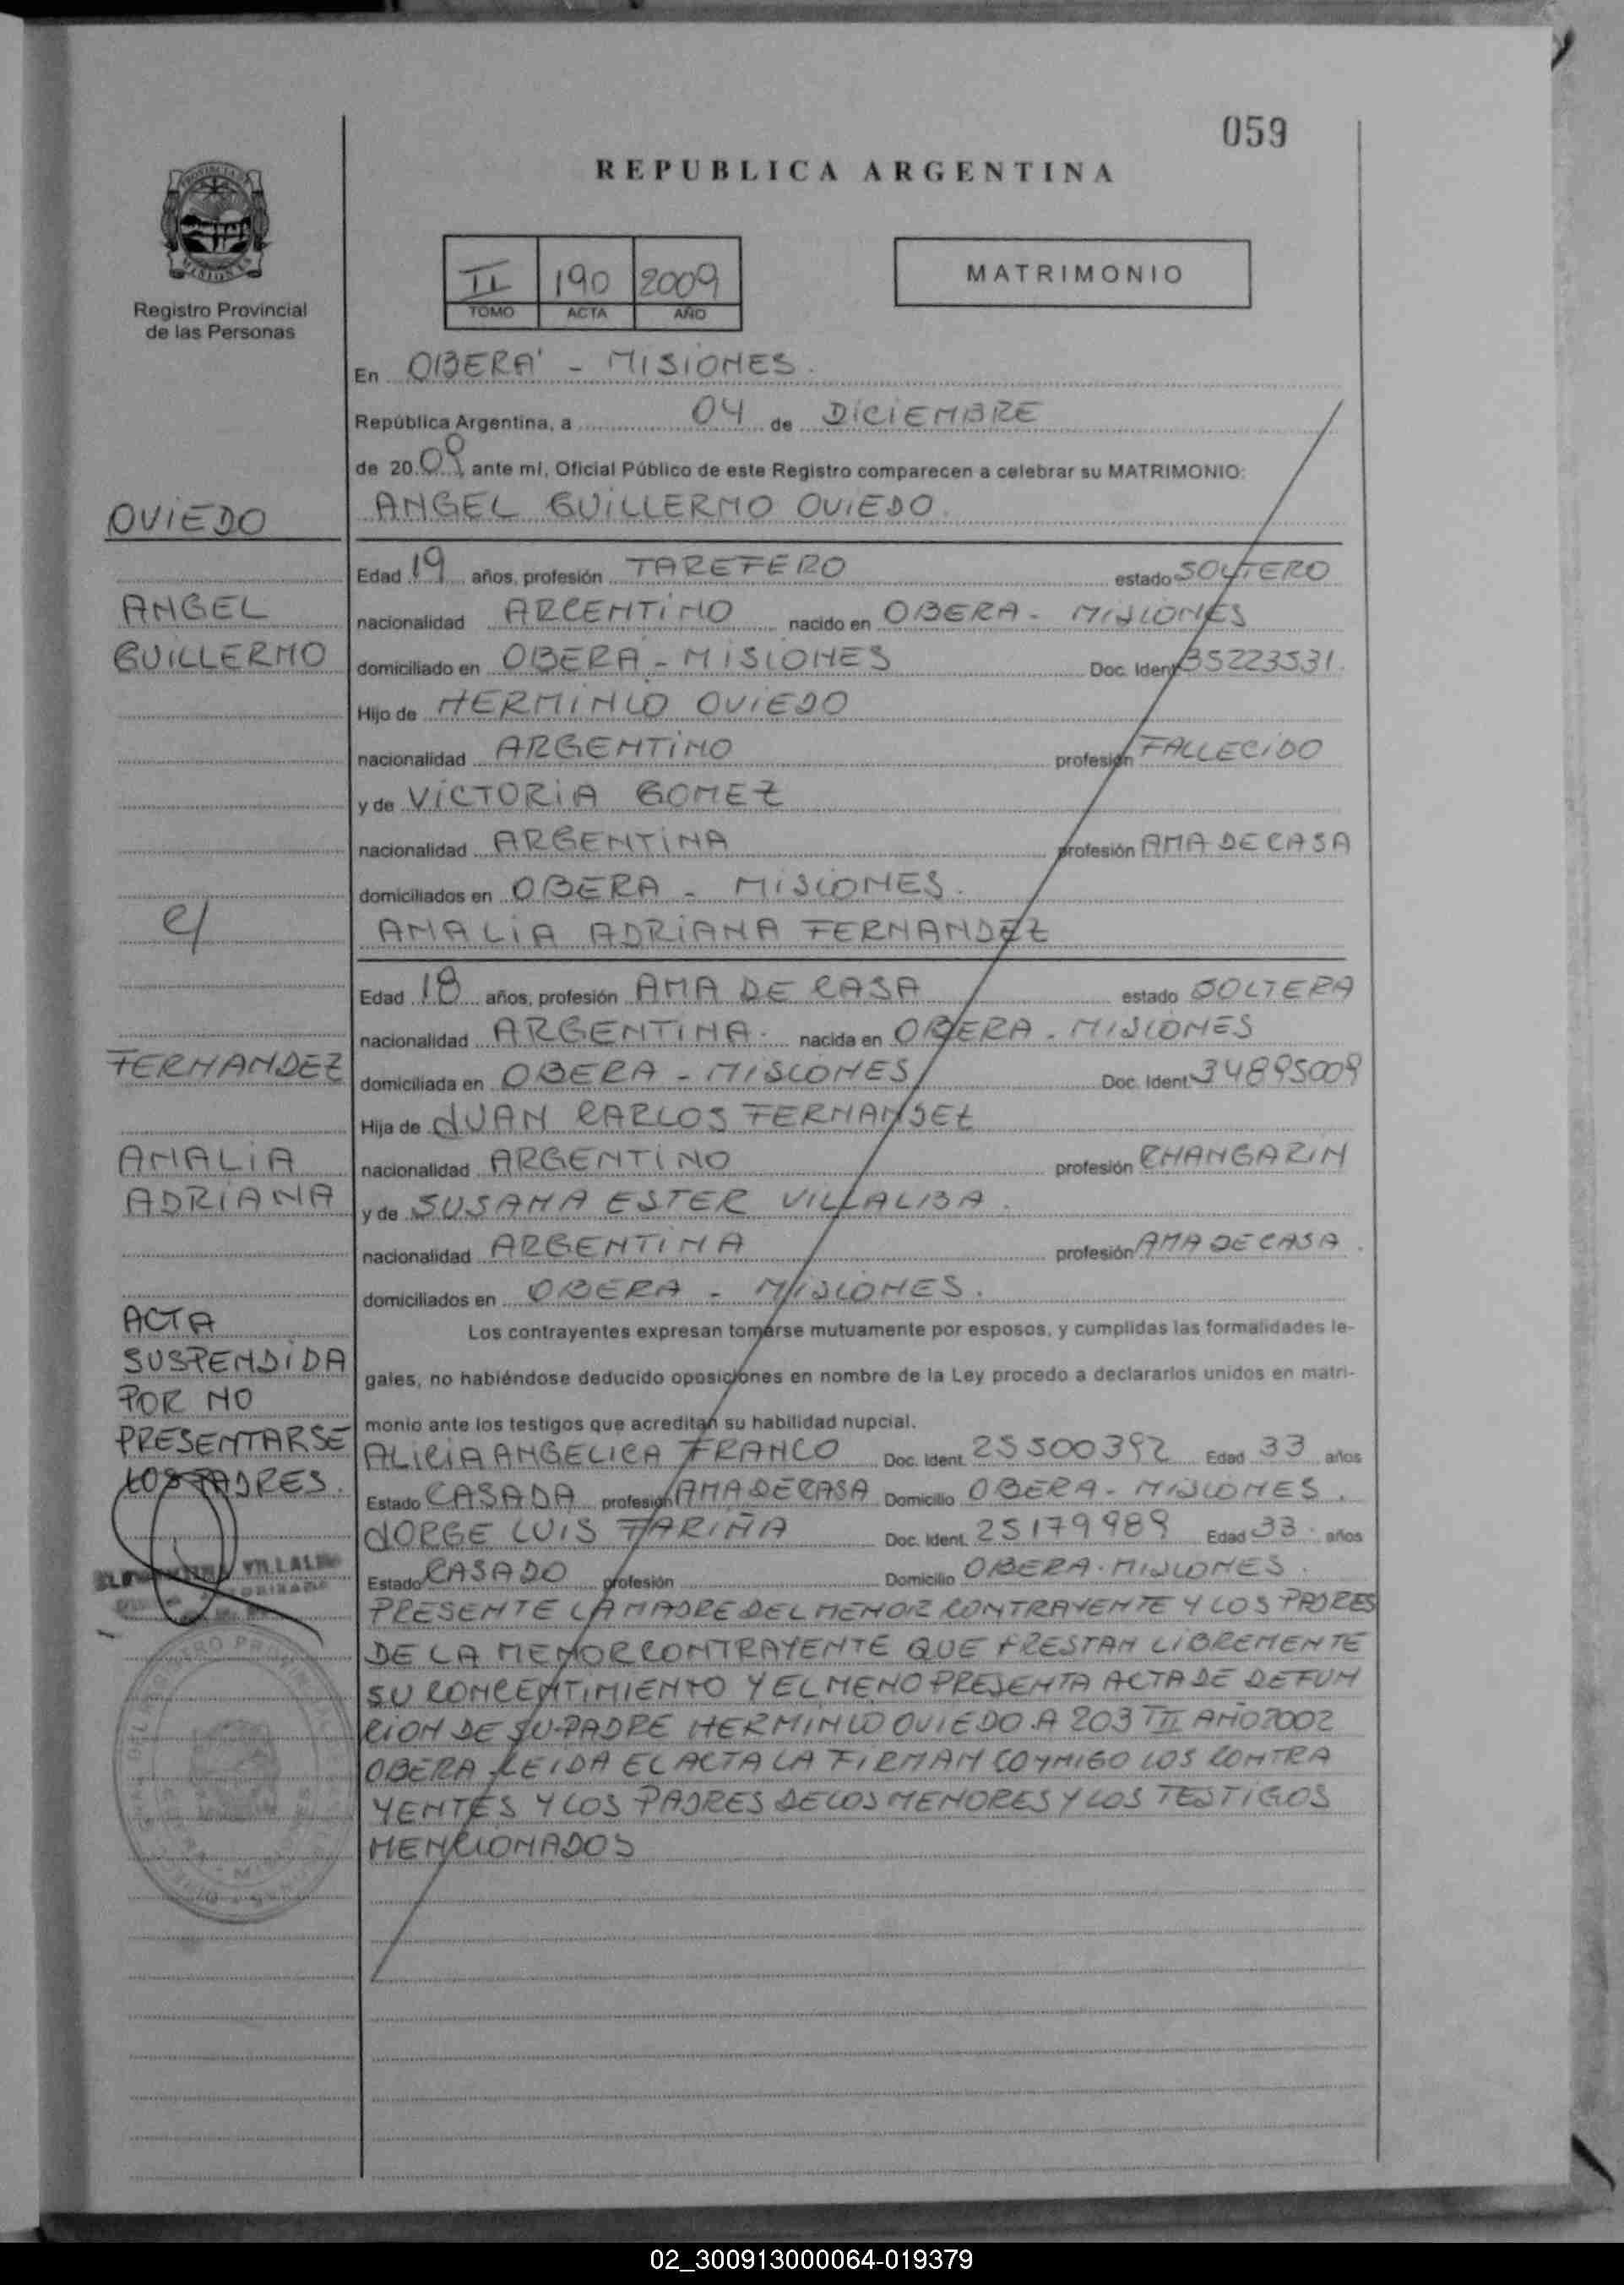 059
REPUBLICA ARGENTINA
PROVINCIA DE
MISIONES
Registro Provincial
de las Personas
II 190 2009
TOMO ACTA AÑO
MATRIMONIO
En OBERA' - MISIONES.
República Argentina, a 04 de DICIEMBRE
de 20 09 ante mí, Oficial Público de este Registro comparecen a celebrar su MATRIMONIO:
OVIEDO
ANGEL GUILLERMO OVIEDO.
Edad 19 años, profesión TAREFERO estado SOLTERO
ANGEL
nacionalidad ARGENTINO nacido en OBERA - MISIONES
GUILLERMO
domiciliado en OBERA - MISIONES Doc. Ident 35223531.
Hijo de HERMINIO OVIEDO
nacionalidad ARGENTINO profesión FALLECIDO
y de VICTORIA GOMEZ
nacionalidad ARGENTINA profesión AMA DE CASA
domiciliados en OBERA - MISIONES.
c/
AMALIA ADRIANA FERNANDEZ
Edad 18 años, profesión AMA DE CASA estado SOLTERA
nacionalidad ARGENTINA. nacida en OBERA - MISIONES
FERNANDEZ
domiciliada en OBERA - MISIONES Doc. Ident. 34895009
Hija de JUAN CARLOS FERNANDEZ
AMALIA
nacionalidad ARGENTINO profesión CHANGARIN
ADRIANA
y de SUSANA ESTER VILLALBA.
nacionalidad ARGENTINA profesión AMA DE CASA.
domiciliados en OBERA - MISIONES.
ACTA
SUSPENDIDA
POR NO
PRESENTARSE
LOS PADRES.
Los contrayentes expresan tomarse mutuamente por esposos, y cumplidas las formalidades le-
gales, no habiéndose deducido oposiciones en nombre de la Ley procedo a declararlos unidos en matri-
monio ante los testigos que acreditan su habilidad nupcial.
ALICIA ANGELICA FRANCO Doc. Ident. 25500392 Edad 33 años
Estado CASADA profesión AMA DE CASA Domicilio OBERA - MISIONES.
JORGE LUIS FARIÑA Doc. Ident. 25179989 Edad 33. años
Estado CASADO profesión Domicilio OBERA - MISIONES.
VILLALBA
PRESENTE LA MADRE DEL MENOR CONTRAYENTE Y LOS PADRES
DE LA MENOR CONTRAYENTE QUE PRESTAN LIBREMENTE
SU CONCENTIMIENTO Y EL MENO PRESENTA ACTA DE DEFUN
CION DE SU PADRE HERMINIO OVIEDO. A 203 TII AÑO 2002
OBERA LEIDA EL ACTA LA FIRMAN CONMIGO LOS CONTRA
YENTES Y LOS PADRES DE LOS MENORES Y LOS TESTIGOS
MENCIONADOS
02_300913000064-019379